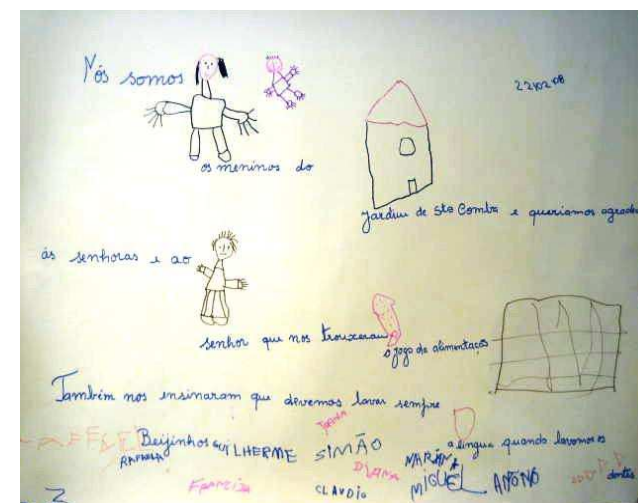 Nós somos
22/02/08
os meninos do
Jardim de Sta Comba e queriamos agrade
ás senhoras e ao
senhor que nos trouxeram
o jogo da alimentação
Também nos ensinaram que devemos lavar sempre
a lingua quando lavamos os
dentes
Beijinhos GUILHERME SIMÃO
RAFAELA
DIANA MARIANA
FRANCISCA CLAUDIO MIGUEL ANTÓNIO